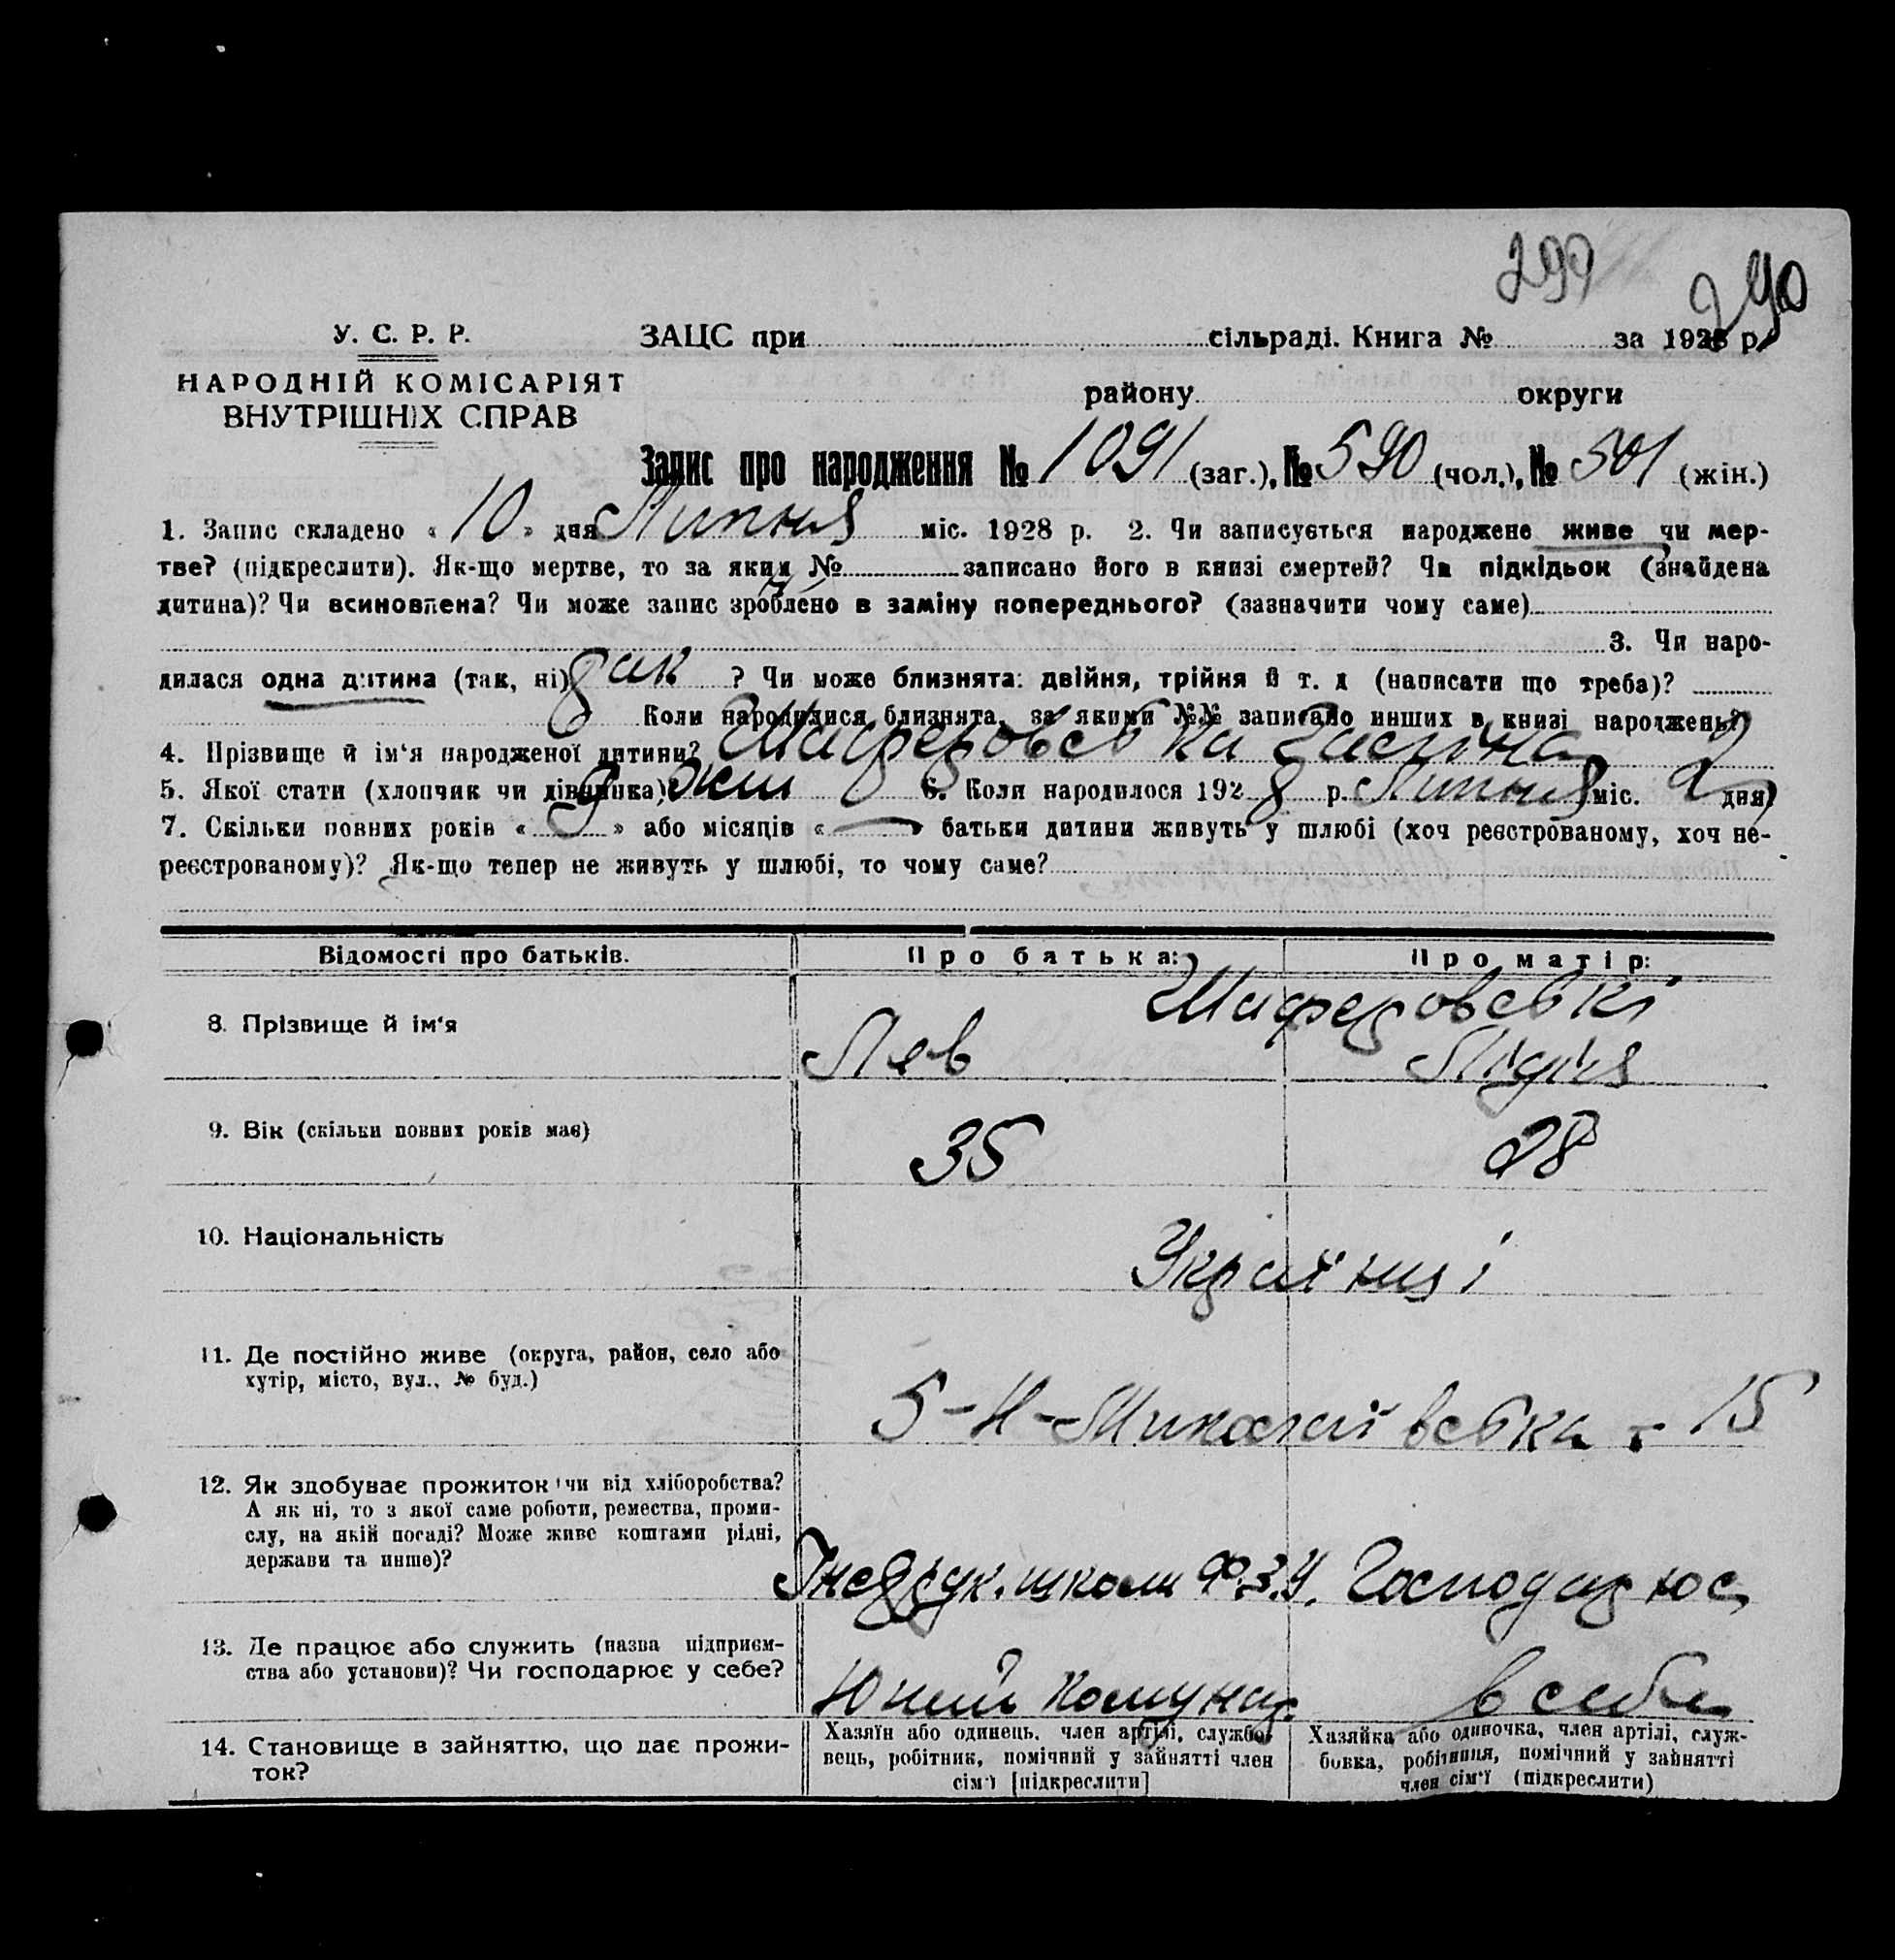 299
290
У. С. Р. Р.
ЗАЦС при сільраді. Книга № за 1928 р.
НАРОДНІЙ КОМІСАРІЯТ
ВНУТРІШНІХ СПРАВ
району округи
Запис про народження № 1091 (заг.), № 590 (чол.), № 501 (жін.)
1. Запис складено « 10 » дня Липня міс. 1928 р. 2. Чи записується народжене живе чи мер-
тве? (підкреслити). Як-що мертве, то за яким № записано його в книзі смертей? Чи підкідьок (знайдена
дитина)? Чи всиновлена? Чи може запис зроблено в заміну попереднього? (зазначити чому саме)
3. Чи наро-
дилася одна дитина (так, ні) так ? Чи може близнята: двійня, трійня й т. д (написати що треба)?
Коли народилися близнята, за якими №№ записано инших в книзі народжень?
4. Прізвище й ім‘я народженої дитини? Шаферовська
5. Якої стати (хлопчик чи дівчинка) жін 6. Коли народилося 1928 р. Липня міс. 2 дня
7. Скільки повних років « » або місяців « — » батьки дитини живуть у шлюбі (хоч реєстрованому, хоч не-
реєстрованому)? Як-що тепер не живуть у шлюбі, то чому саме?
Відомості про батьків.
Про батька:
Про матір:
8. Прізвище й ім‘я
Шаферовські
Лев
Лідія
9. Вік (скільки повних років має)
35
28
10. Національність
Українці
11. Де постійно живе (округа, район, село або
хутір, місто, вул., № буд.)
5-Н-Миколаївська - 15
12. Як здобуває прожиток (чи від хліборобства?
А як ні, то з якої саме роботи, ремества, проми-
слу, на якій посаді? Може живе коштами рідні,
держави та инше)?
школи Ф.З.У.
Господарює
13. Де працює або служить (назва підприєм-
ства або установи)? Чи господарює у себе?
Юний Комунар.
в себе
14. Становище в зайняттю, що дає прожи-
ток?
Хазяїн або одинець, член артілі, службо-
вець, робітник, помічний у зайнятті член
сім‘ї [підкреслити]
Хазяйка або одиночка, член артілі, служ-
бовка, робітниця, помічний у зайнятті
член сім‘ї (підкреслити)